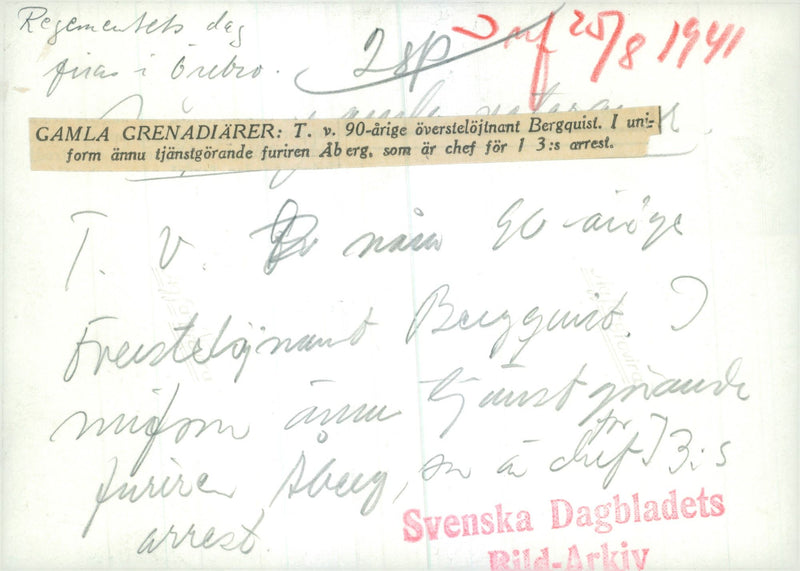 Regementets dag
firas i Örebro.
2 sp
Inf 25/8 1941
GAMLA GRENADIÄRER: T. v. 90-årige överstelöjtnant Bergquist. I uni-
form ännu tjänstgörande furiren Åberg, som är chef för I 3:s arrest.
T. V. nära 90-årige
Överstelöjnant Bergquist. I
uniform ännu tjänstgörande
furiren Åberg, som är chef för I 3:s
arrest.
Svenska Dagbladets
Bild-Arkiv